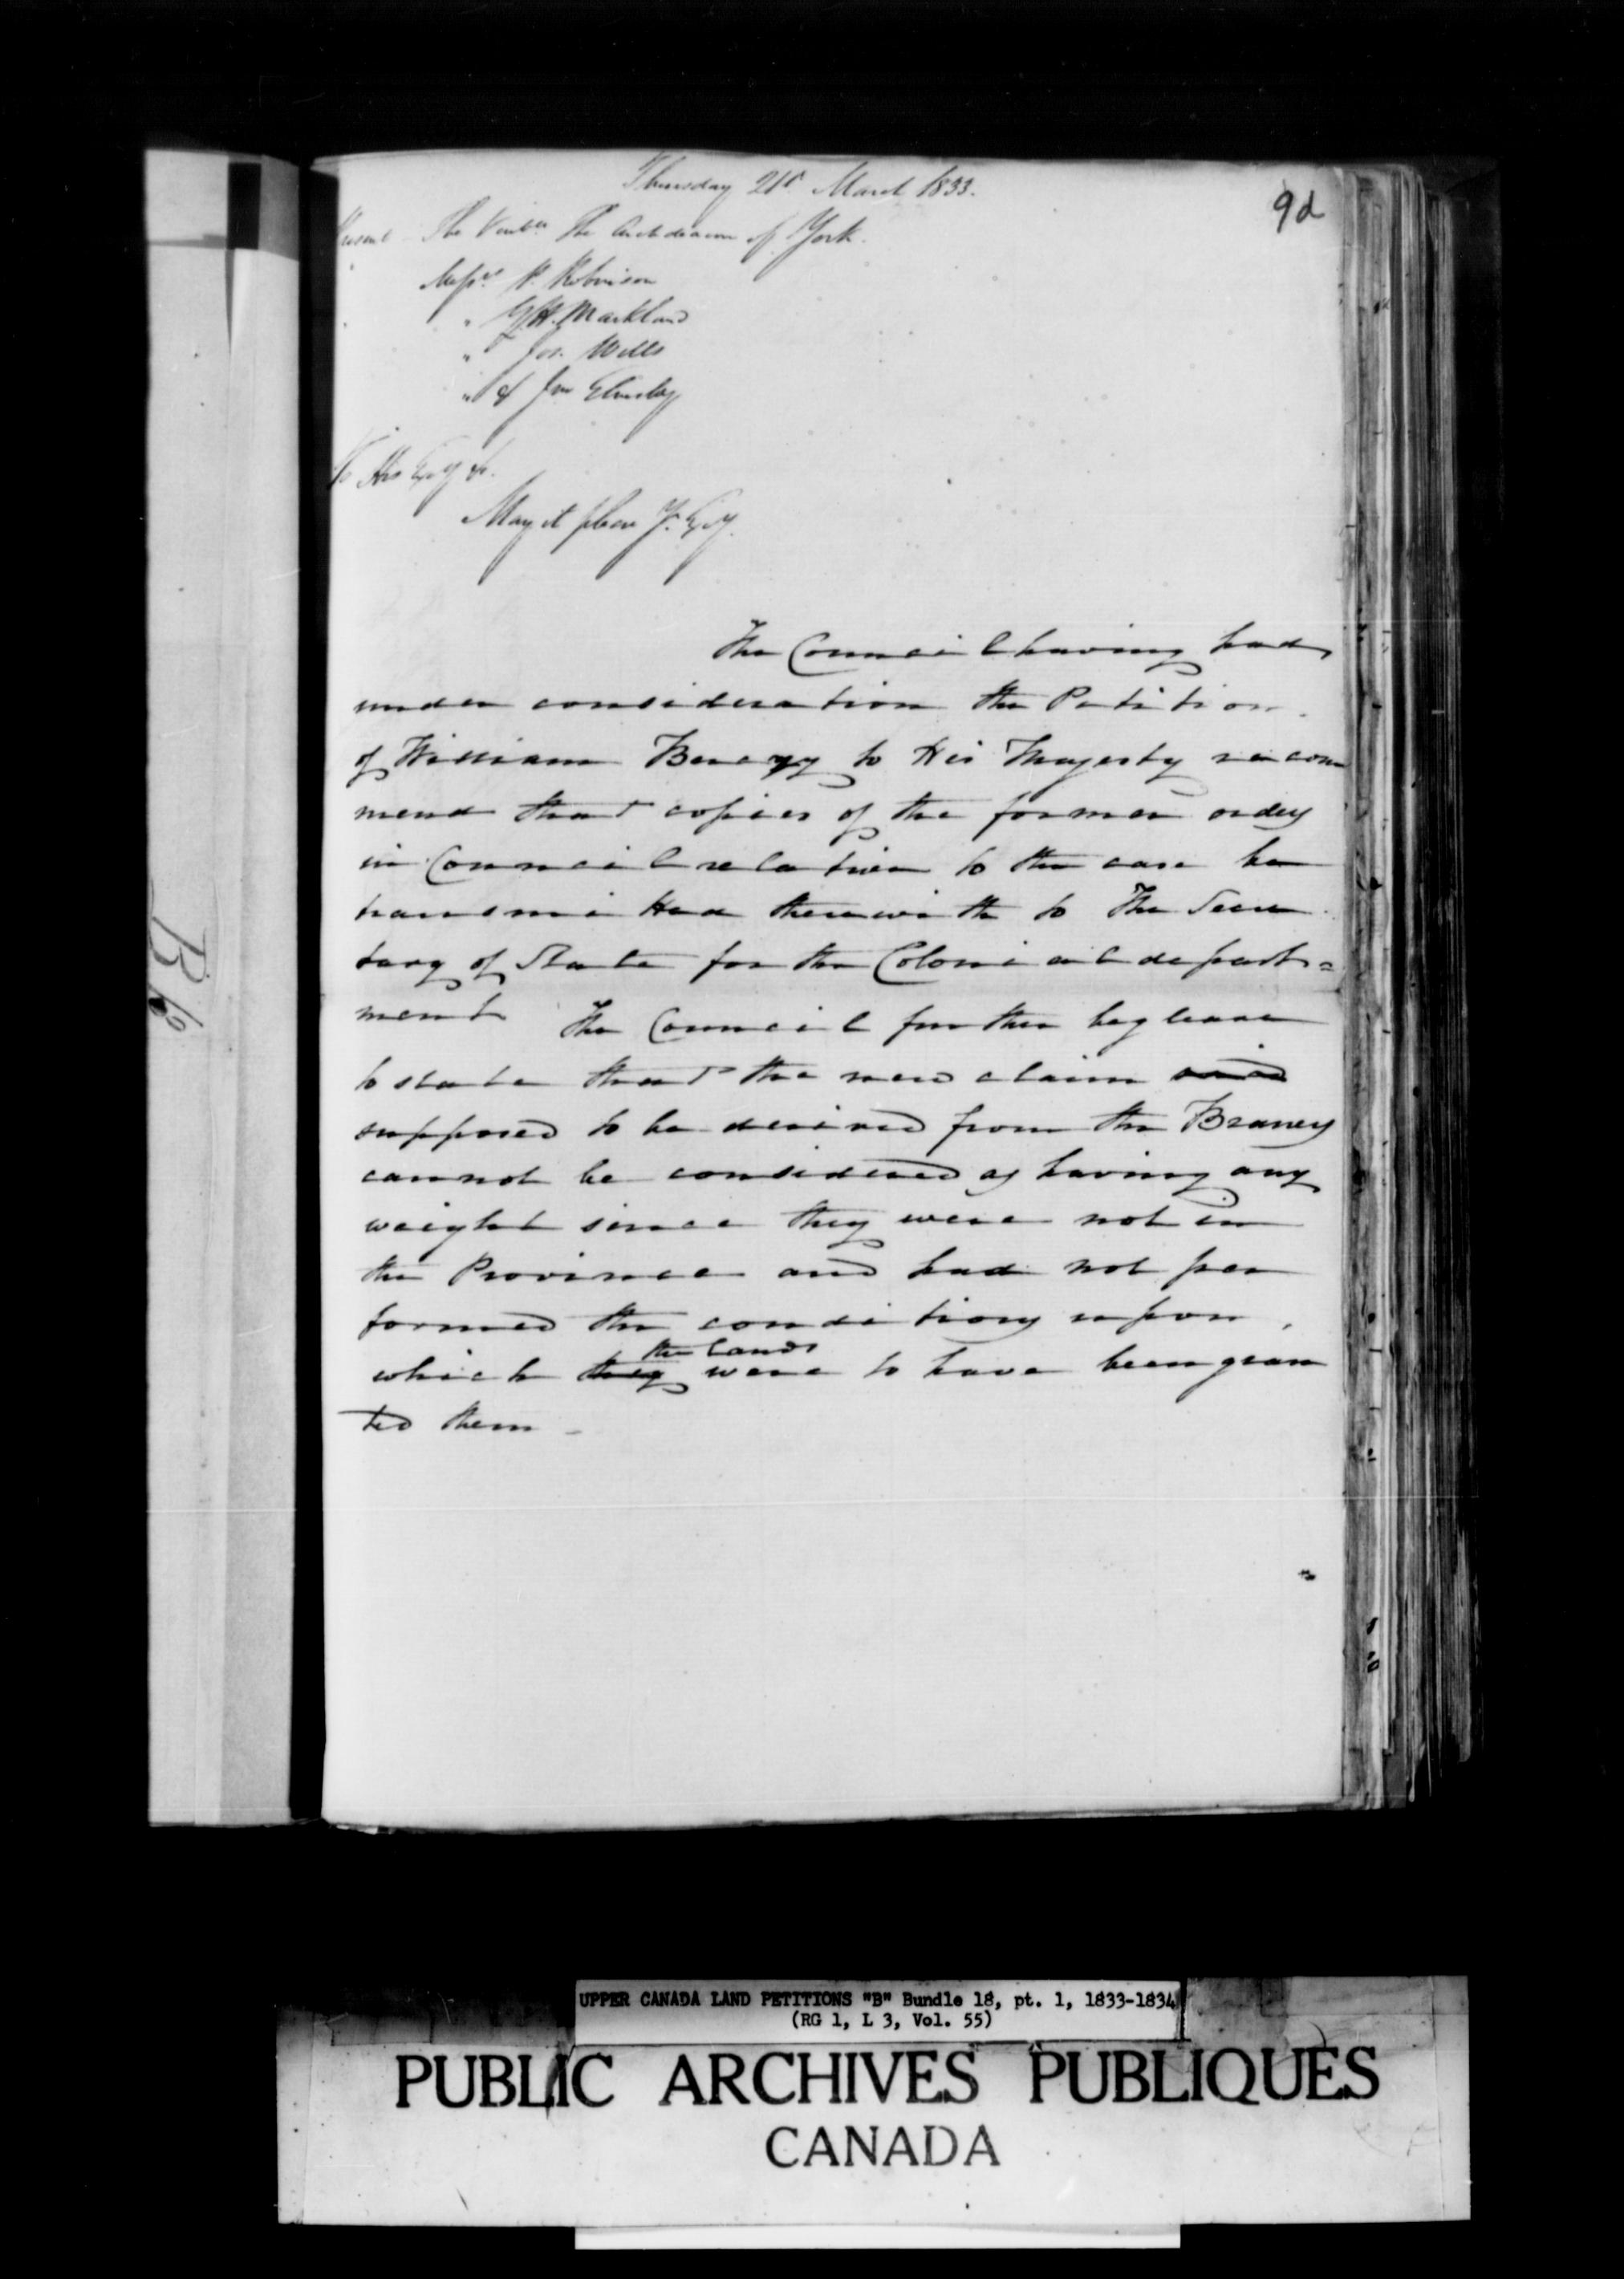 9d
Thursday 21st March 1833.
Present The Venble The Archdeacon of York.
Messrs P. Robinson
" G H. Markland
" Jos. Wells
" & Jno Elmsley
To His Exy &c.
May it please Yr. Exy.
The Council having had
under consideration the Petition
of William Berczy to His Majesty recom
mend that copies of the former orders
in Council relative to the case be
transmitted therewith to The Secre
tary of State for the Colonial depart=
ment The Council further beg leave
to state that the new claim
supposed to be derived from the Braneys
cannot be considered as having any
weight since they were not in
the Province and had not per
formed the conditions upon
the lands
which they were to have been gran
ted them
B
UPPER CANADA LAND PETITIONS "B" Bundle 18, pt. 1, 1833-1834
(RG 1, L 3, Vol. 55)
PUBLIC ARCHIVES PUBLIQUES
CANADA